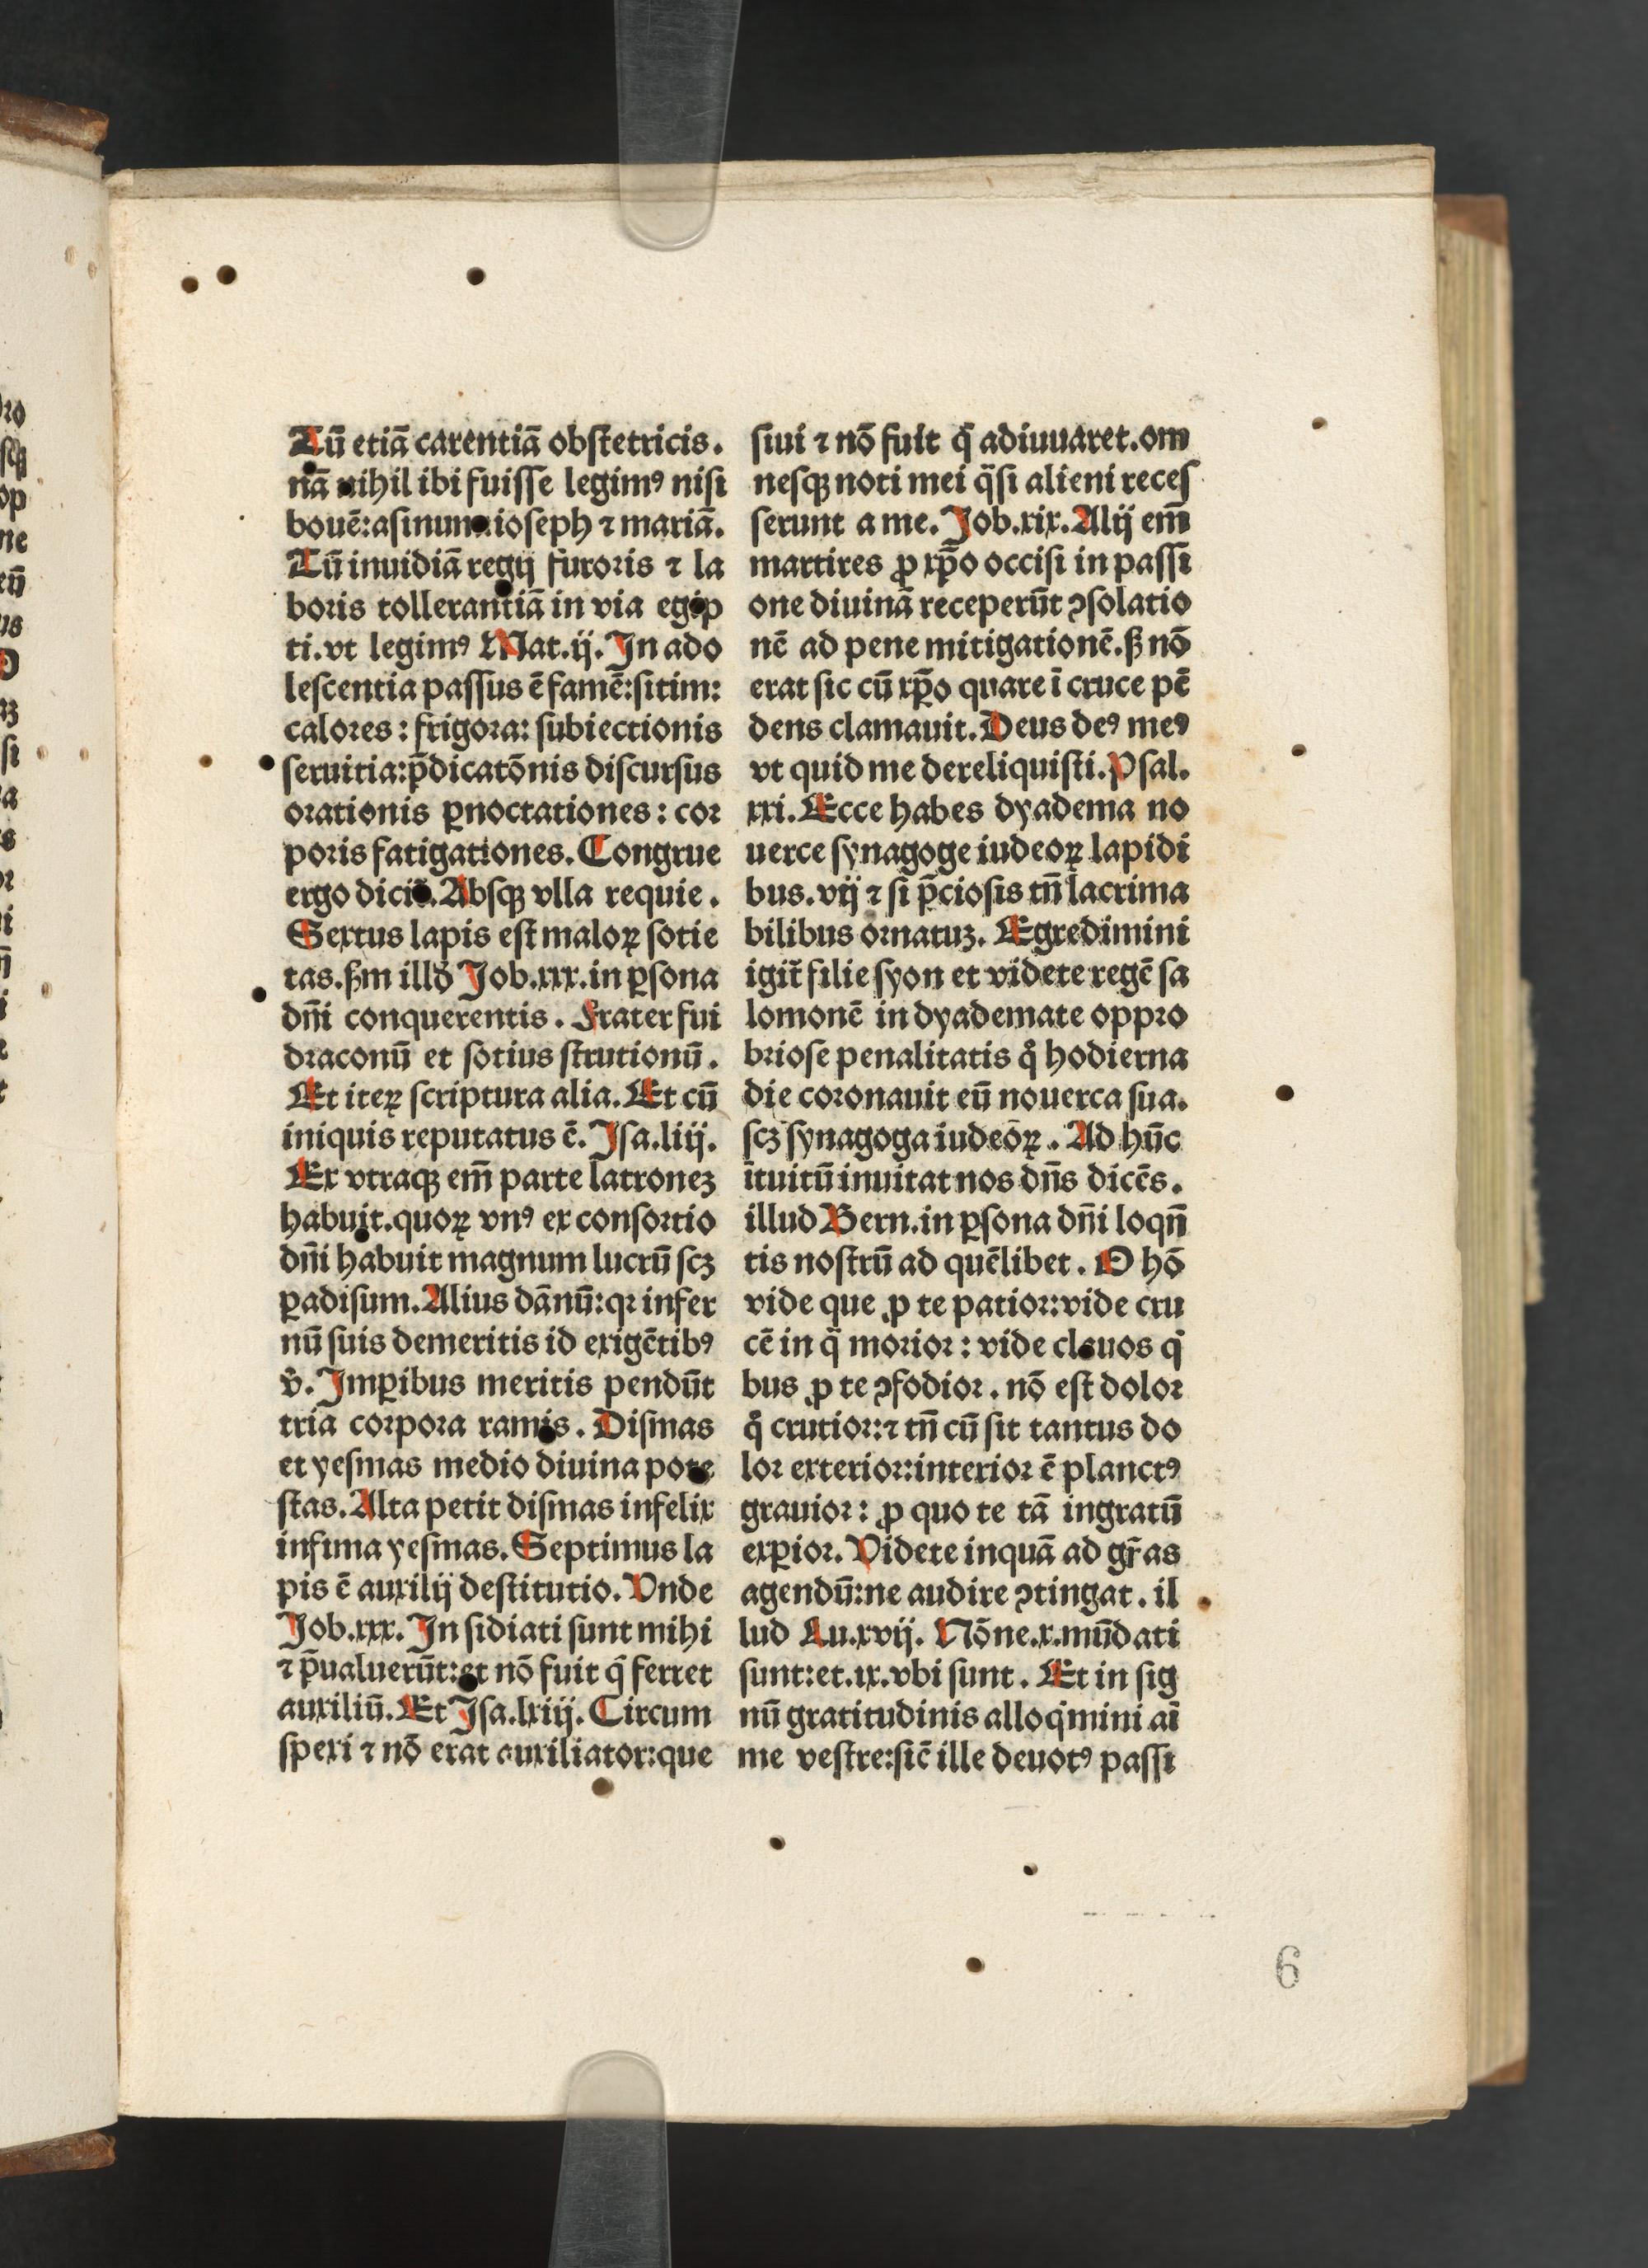 Tū etiā carentiā obstetricis.
nā nihil ibi fuisse legimꝰ nisi
bouē:asinum:ioseph ⁊ mariā.
Tū inuidiā regij furoris ⁊ la
boris tollerantiā in via egip
ti.vt legimꝰ Mat.ij. In ado
lescentia passus ē famē:sitim:
calores: frigora: subiectionis
seruitia:p̄dicatōnis discursus
orationis ꝑnoctationes: cor
poris fatigationes. Congrue
ergo dicit̄. Absqꝫ vlla requie.
Sextus lapis est maloꝝ sotie
tas.ẜm illḋ Job.xxx.in ꝑsona
dn̄i conquerentis. Frater fui
draconū et sotius strutionū.
Et iteꝝ scriptura alia. Et cū
iniquis reputatus ē. Isa.liij.
Ex vtraqꝫ em̄ parte latronez
habuit.quoꝝ vnꝰ ex consortio
dn̄i habuit magnum lucrū scꝫ
ꝑadisum. Alius dānū:qꝛ infer
nū suis demeritis id exigētibꝰ
v̄. Imꝑibus meritis pendūt
tria corpora ramis. Dismas
et yesmas medio diuina pote
stas. Alta petit dismas infelix
infima yesmas. Septimus la
pis ē auxilij destitutio. Vnde
Job.xxx. In sidiati sunt mihi
⁊ p̄ualuerūt:et nō fuit q̄ ferret
auxiliū. Et Isa.lxiij. Circum
spexi ⁊ nō erat auxiliator:que
siui ⁊ nō fuit q̄ adiuuaret.om
nesqꝫ noti mei q̄si alieni reces
serunt a me. Job.xix. Alij em̄
martires ꝓ xp̄o occisi in passi
one diuinā receperūt ꝯsolatio
nē ad pene mitigationē.ẜ nō
erat sic cū xp̄o quare ī cruce pē
dens clamauit. Deus deꝰ meꝰ
vt quid me dereliquisti. Psal.
xxi. Ecce habes dyadema no
uerce synagoge iudeoꝝ lapidi
bus.vij ⁊ si p̄ciosis tn̄ lacrima
bilibus ornatuꝫ. Egredimini
igit̄ filie syon et videte regē sa
lomonē in dyademate oppro
briose penalitatis q̊ hodierna
die coronauit eū nouerca sua.
scꝫ synagoga iudeoꝝ. Ad hūc
ītuitū inuitat nos dn̄s dicēs.
illud Bern.in ꝑsona dn̄i loqn̄
tis nostrū ad quēlibet. O hō
vide que ꝓ te patior:vide cru
cē in q̄ morior: vide clauos qͥ
bus ꝓ te ꝯfodior. nō est dolor
q̊ crutior:⁊ tn̄ cū sit tantus do
lor exterior:interior ē planctꝰ
grauior: ꝓ quo te tā ingratū
exꝑior. Videte inquā ad gr̄as
agendū:ne audire ꝯtingat. il
lud Lu.xvij. Nōne.x.mūdati
sunt:et.ix.vbi sunt. Et in sig
nū gratitudinis alloqͥmini aī
me vestre:sic̄ ille deuotꝰ passi
6